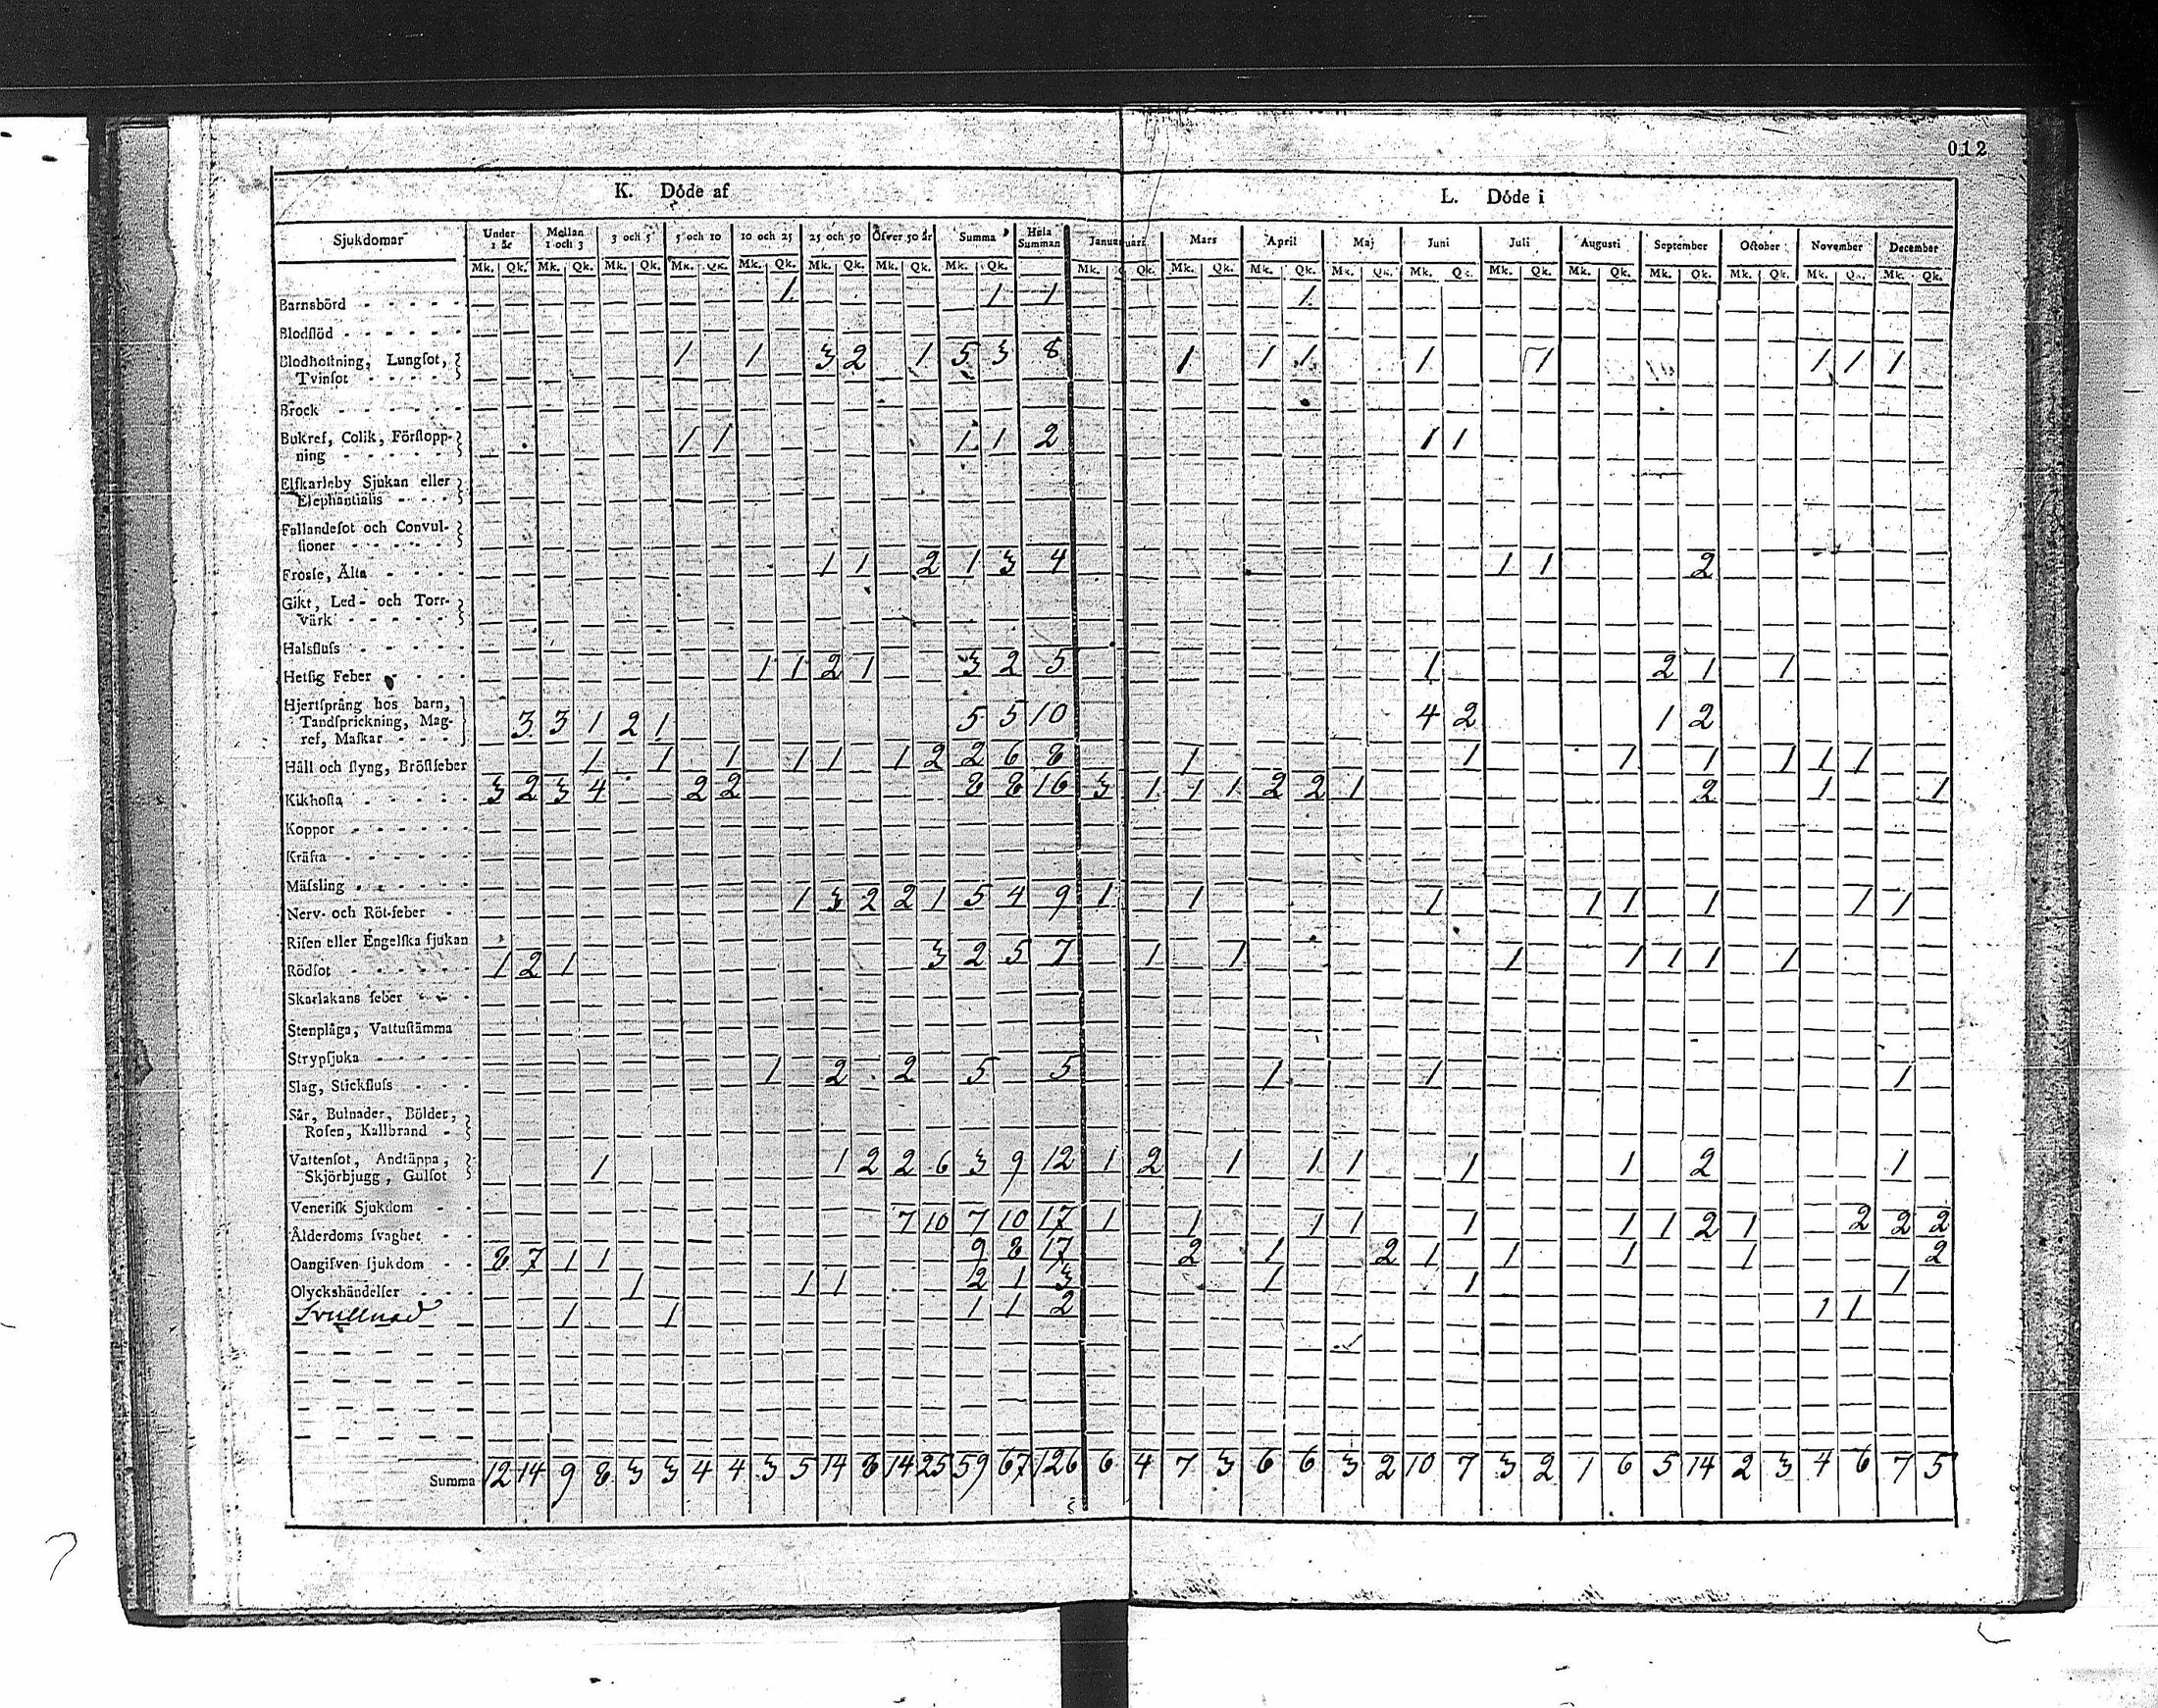 012
K. Döde af L. Döde i
Sjukdomar Under 1 år Mellan 1 och 3 3 och 5 5 och 10 10 och 25 25 och 50 Öfver 50 år Summa Hela Summan Januari Mars April Maj Juni Juli Augusti September October November December
Mk. Qk. Mk. Qk. Mk. Qk. Mk. Qk. Mk. Qk. Mk. Qk. Mk. Qk. Mk. Qk. Mk. Qk. Mk. Qk. Mk. Qk. Mk. Qk. Mk. Qk. Mk. Qk. Mk. Qk. Mk. Qk. Mk. Qk. Mk. Qk. Mk. Qk.
Barnsbörd 1 1 1 1
Blodflöd
Blodhostning, Lungſot, 1 1 3 2 1 5 3 8 1 1 1 1 1 1 1 1
Tvinſot
Brock
Bukref, Colik, Förſtopp- 1 1 1 1 2 1 1
ning
Elfkarleby Sjukan eller
Elephantiaſis
Fallandeſot och Convul-
ſioner
Frosſe, Älta 1 1 2 1 3 4 1 1 2
Gikt, Led- och Torr-
värk
Halsfluſs
Hetſig Feber 1 1 2 1 3 2 5 1 2 1 1
Hjertſprång hos barn,
Tandſprickning, Mag- 3 3 1 2 1 5 5 10 4 2 1 2
ref, Maſkar
Håll och ſtyng, Bröſtfeber 1 1 1 1 1 1 2 2 6 8 1 1 1 1 1 1 1
Kikhoſta 3 2 3 4 2 2 8 8 16 3 1 1 1 2 2 1 2 1 1
Koppor
Kräfta
Mäſsling
Nerv- och Röt-feber 1 3 2 2 1 5 4 9 1 1 1 1 1 1 1 1
Riſen eller Engelſka ſjukan
Rödſot 1 2 1 3 2 5 7 1 1 1 1 1 1 1
Skarlakans feber
Stenplåga, Vattuſtämma
Strypſjuka
Slag, Stickfluſs 1 2 2 5 5 1 1 1
Sår, Bulnader, Bölder,
Roſen, Kallbrand
Vattenſot, Andtäppa, 1 1 2 2 6 3 9 12 1 2 1 1 1 1 1 2 1
Skjörbjugg, Gulſot
Veneriſk Sjukdom
Ålderdoms ſvaghet 7 10 7 10 17 1 1 1 1 1 1 1 2 1 2 2 2
Oangifven ſjukdom 8 7 1 1 9 8 17 2 1 2 1 1 1 1 2
Olyckshändelſer 1 1 1 2 1 3 1 1 1
Svullnad 1 1 1 1 2 1 1
Summa 12 14 9 8 3 3 4 4 3 5 14 8 14 25 59 67 126 6 4 7 3 6 6 3 2 10 7 3 2 1 6 5 14 2 3 4 6 7 5